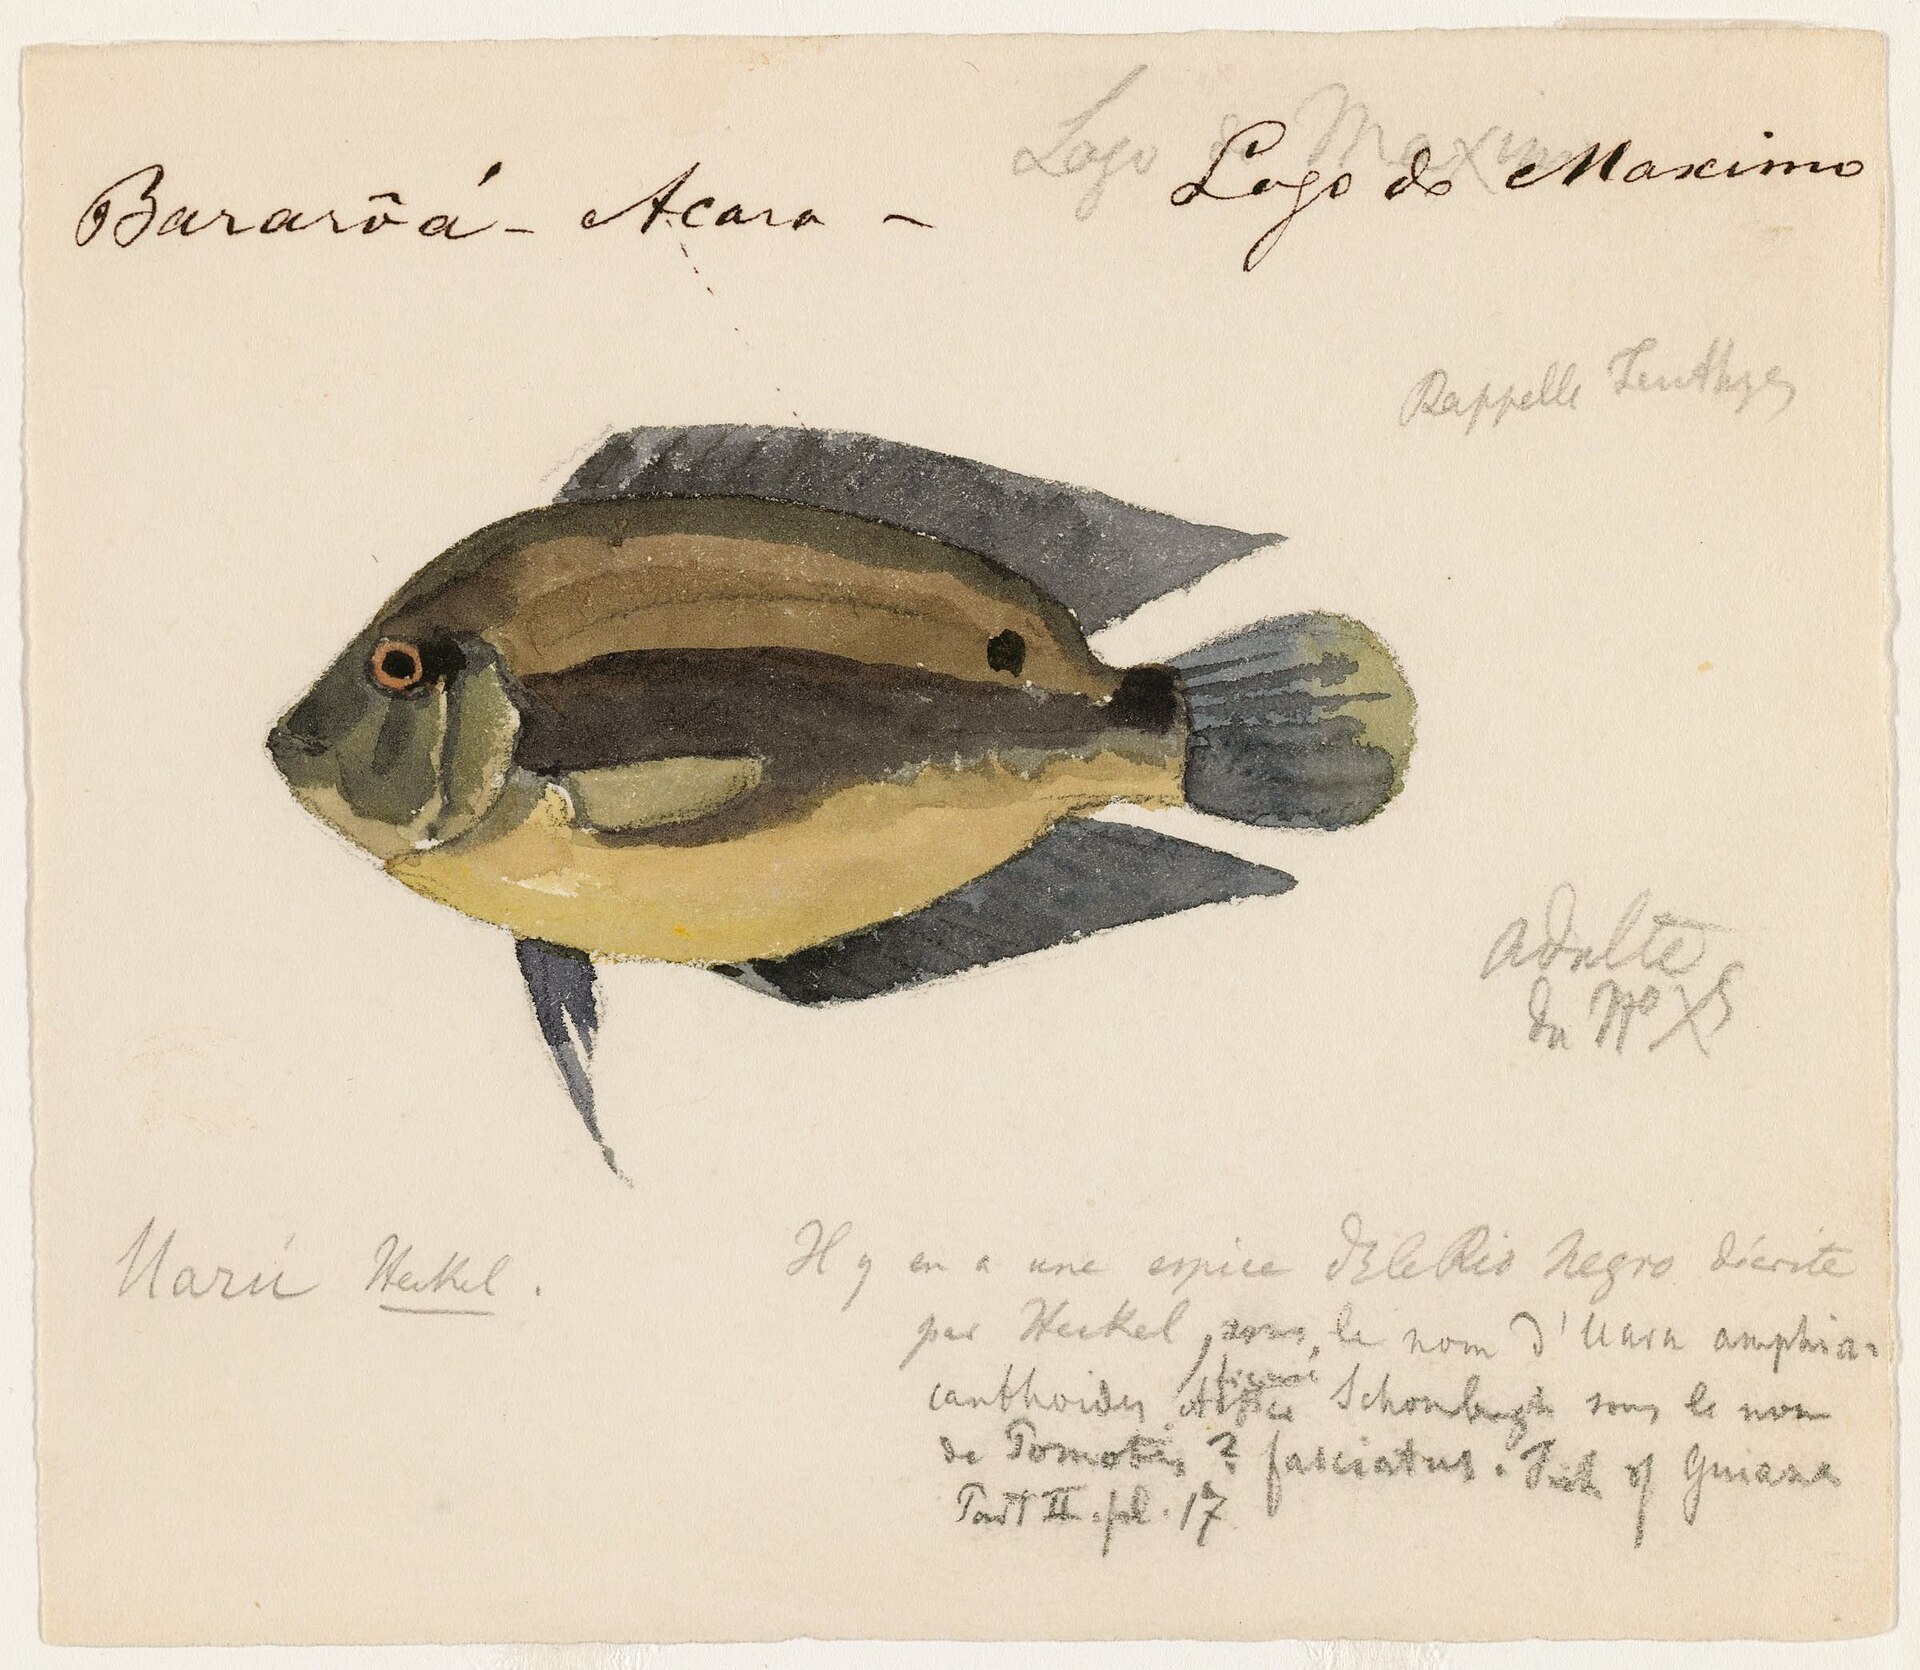 Lago do Maxim
Bararôá - Acara - Lago do Maximo
Rappelle
adulte
du No
Uarú Heckel.
Il y en a une espèce de le Rio Negro décrite
par Heckel sous le nom d'Uara amphia-
canthoides, figuré Schomburgk sous le nom
de Pomotis ? fasciatus. Fish of Guiana
Part II. pl. 17